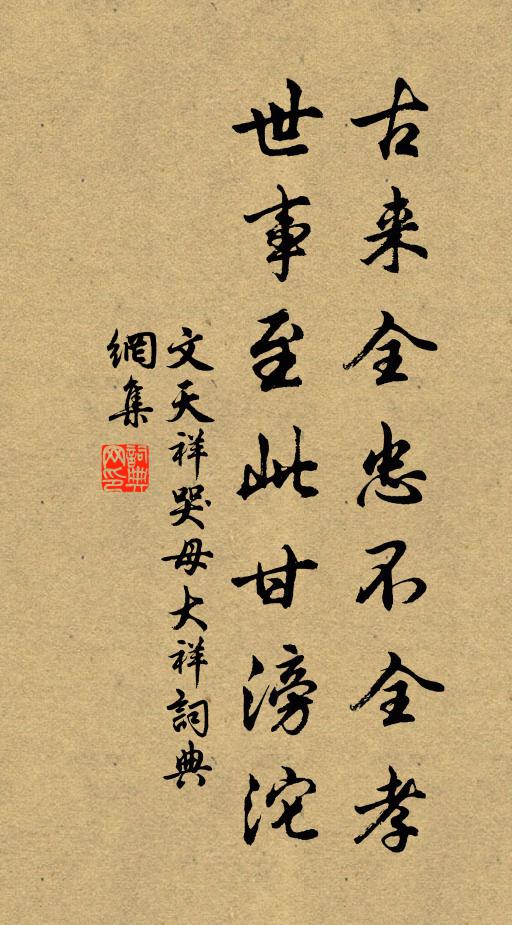 古来全忠不全孝
世事至此甘滂沱
文天祥哭母大祥詞典
網集
詞典
网印